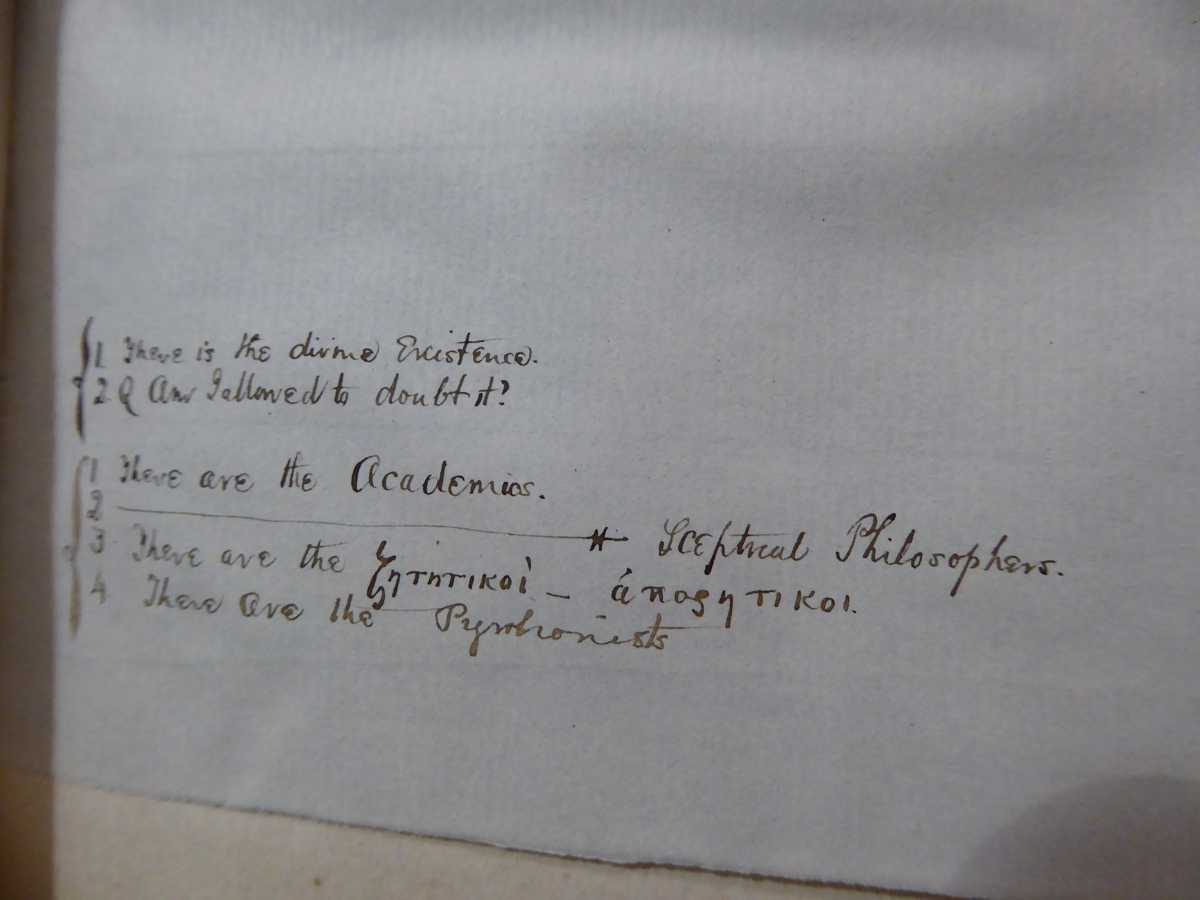 1 There is the divine Existence.
2 Q Am I allowed to doubt it?
1 There are the Academics.
2 ——— # Sceptical Philosophers.
3 There are the ζητητικοὶ – ἀπορητικοι.
4 There are the Pyrrhonists